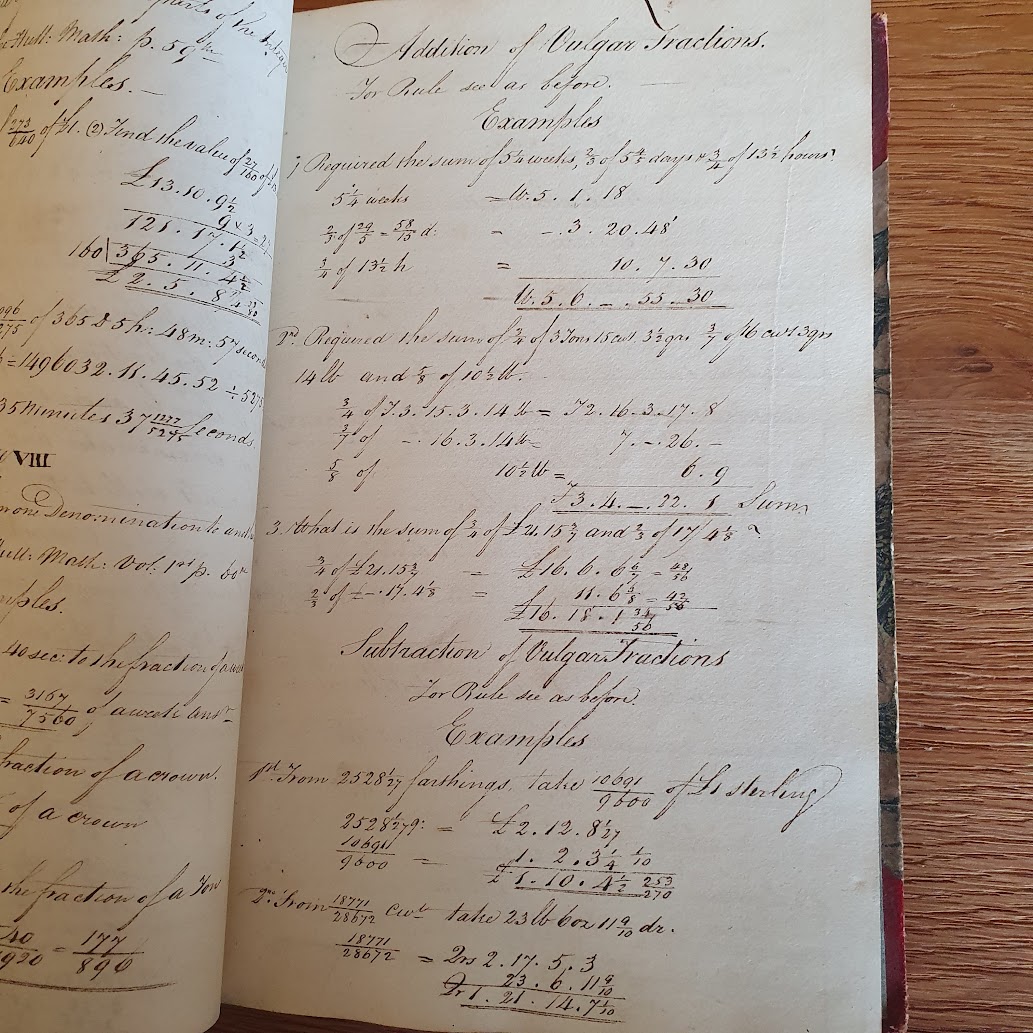 parts of the Integer
Hutt: Math: p. 59
Examples.—
273/640 of £1. (2) Find the value of 27/160 of
£13.10.9½
9 × 3 = 27
121.17.1½
3
160 | 365.11.4½
£2.5.8
of 365 D 5h: 48m: 57 seconds
= 1496032.11.45.52 ÷ 5275
35 minutes 37 seconds
VIII
more Denomination to and
Hutt: Math: Vol: 1st p. 60
Examples.
40 sec: to the fraction of a
= 3167/7560 of a week ansr
fraction of a crown.
of a crown
the fraction of a Ton
= 177/896
Addition of Vulgar Fractions.
For Rule see as before.
Examples
1 Required the sum of 5¼ weeks, 2/3 of 5 4/5 days & 3/4 of 13½ hours
5¼ weeks = W. 5. 1. 18
2/3 of 29/5 = 58/15 d: = -. 3. 20. 48'
3/4 of 13½ h = 10. 7. 30
= W. 5. 6. —. 55. 30
2nd. Required the sum of 3/4 of 3 Tons 15 cwt. 3½ qrs 3/7 of 16 cwt 3 qrs
14 lb and 5/8 of 10½ lb.
3/4 of T. 3. 15. 3. 14 lb = T 2. 16. 3. 17. 8
3/7 of —. 16. 3. 14 lb 7. —. 26. —
5/8 of 10½ lb = 6. 9
T 3. 4. —. 22. 1 Sum
3. What is the sum of 3/4 of £21.15 3/7 and 2/3 of 17/ 4 1/8 ?
3/4 of £21.15 3/7 = £16. 6. 6 6/7 = 48/56
2/3 of £—. 17. 4 1/8 = 11. 6 = 42/56
£16. 18. 1 34/56
Subtraction of Vulgar Fractions
For Rule see as before.
Examples
1st. From 2528 1/27 farthings, take 10691/9600 of £1 sterling
2528 1/27 q: = £2. 12. 8 1/27
10691/9600 = 1. 2. 3¼ 1/10
£ 1. 10. 4½ 253/270
2nd. From 18771/28672 cwt take 23 lb 6 oz 11 9/10 dr.
18771/28672 = 2rs 2. 17. 5. 3
23. 6. 11 9/10
2r 1. 21. 14. 7 1/10